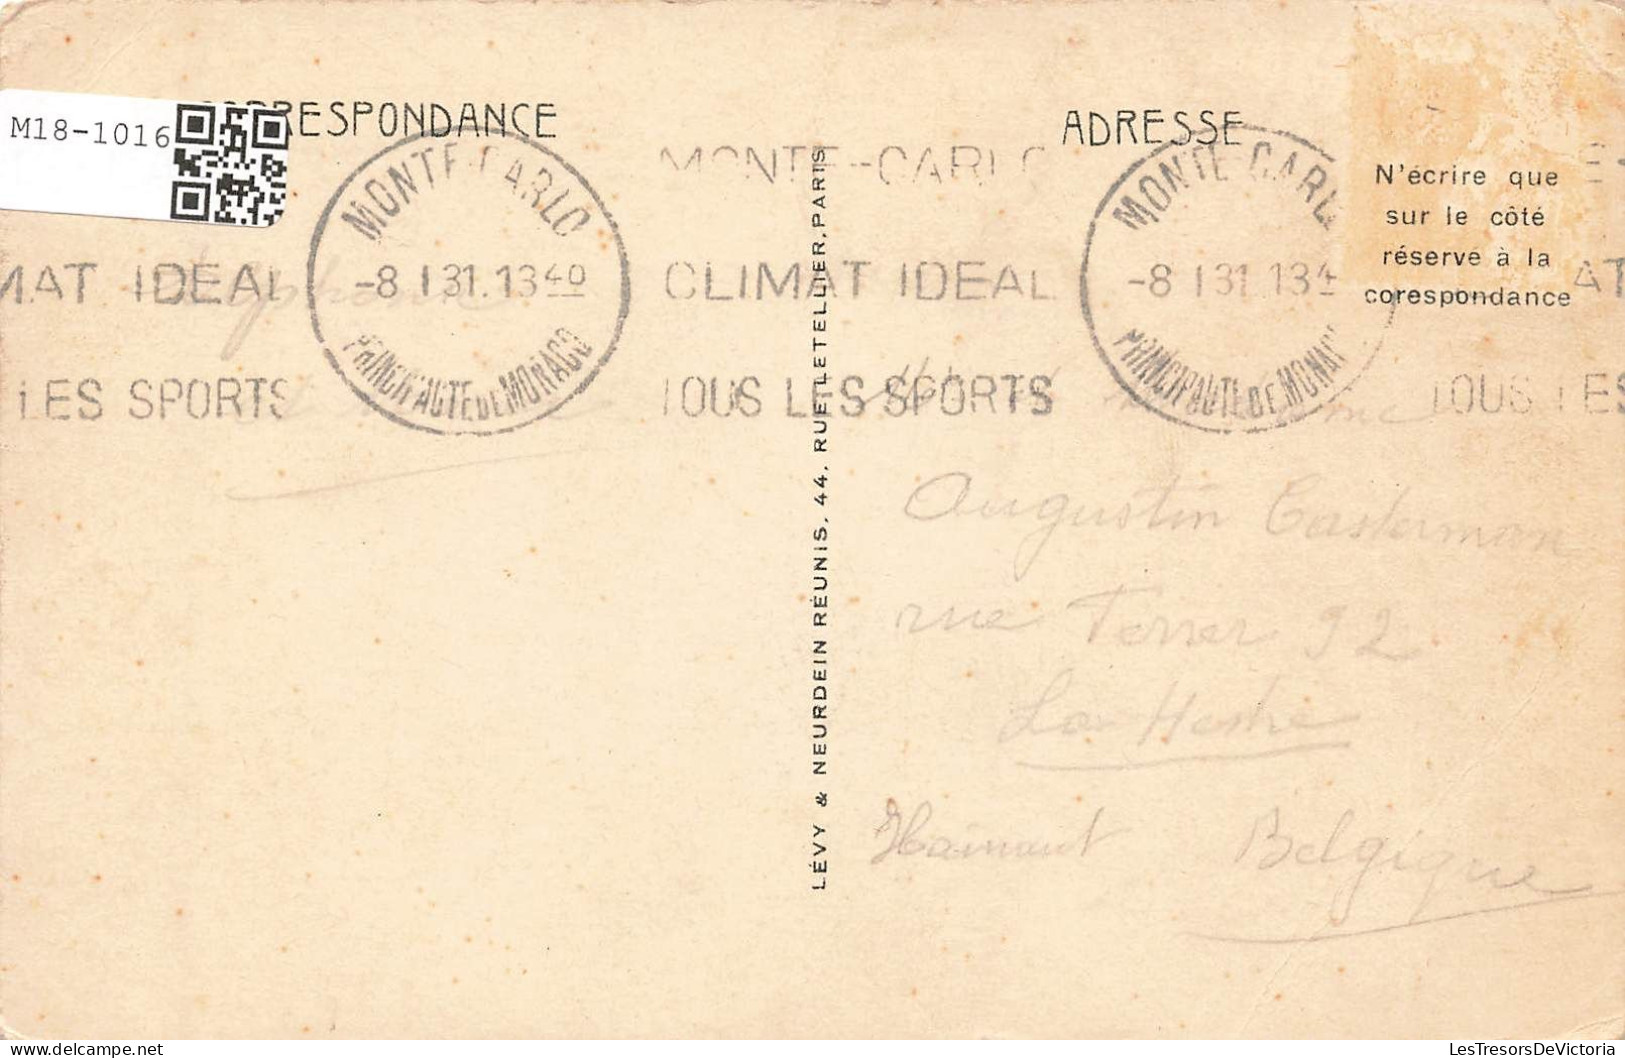 M18-1016
CORRESPONDANCE
ADRESSE
MONTE-CARLO
-8 I 31. 1340
PRINCIPAUTE DE MONACO
MONTE-CARLO
CLIMAT IDEAL
TOUS LES SPORTS
MONTE-CARL
-8 I 31. 134
PRINCIPAUTE DE MONAC
MAT IDEAL
LES SPORTS
E-
AT
TOUS LES
N'écrire que
sur le côté
réservé à la
corespondance
LÉVY & NEURDEIN RÉUNIS, 44, RUE LETELLIER, PARIS
Augustin Casterman
rue Ferrer 92
La Hestre
Hainaut Belgique
LesTresorsDeVictoria